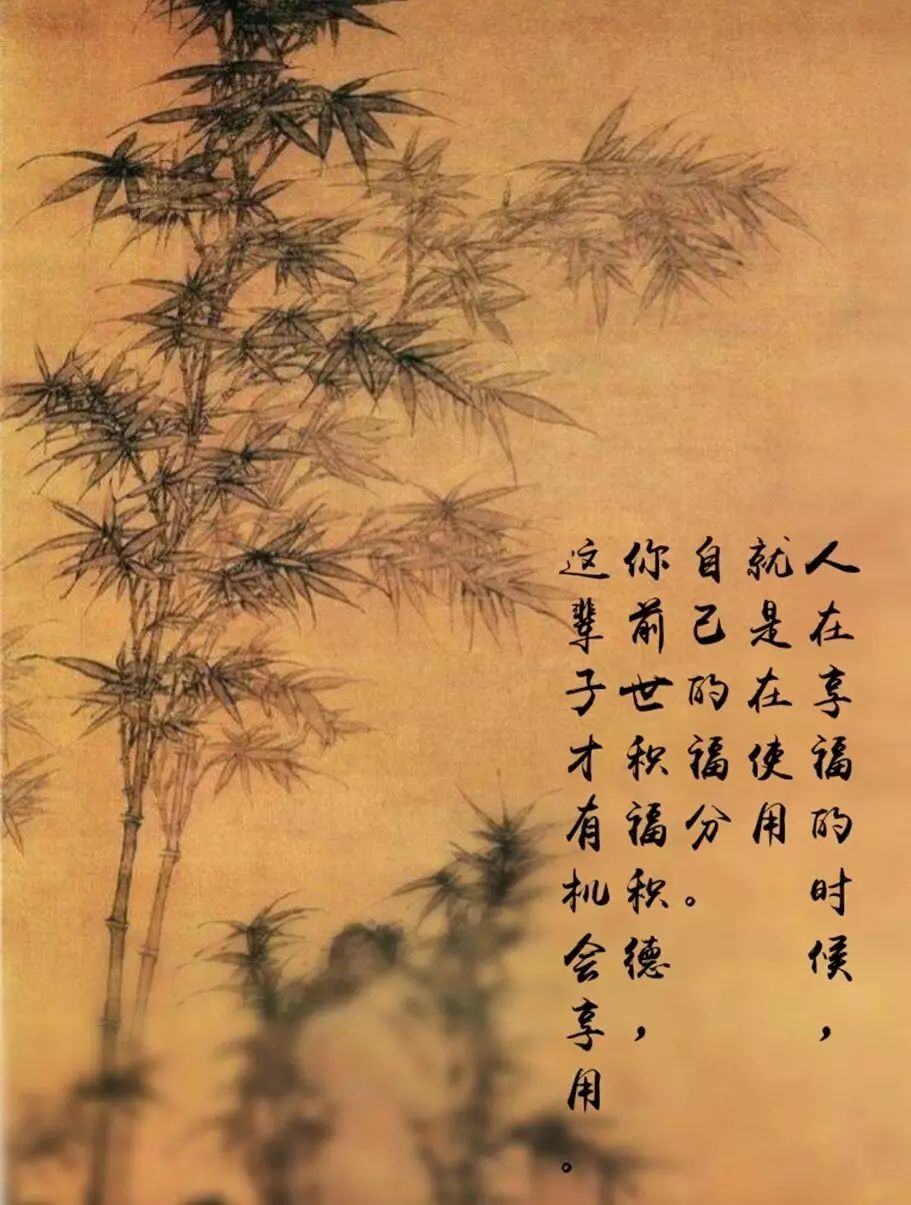 人在享福的时候，
就是在使用
自己的福分。
你前世积福积德，
这辈子才有机会享用。